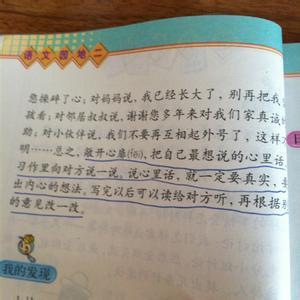 语文园地二
您操碎了心;对妈妈说,我已经长大了,别再把我
孩看;对邻居叔叔说,谢谢您多年来对我们家真诚的
助;对小伙伴说,我们不要再互相起外号了,这样
明……总之,敞开心扉(fēi),把自己最想说的心里话
习作里向对方说一说。说心里话,就一定要真实,要
出内心的想法。写完以后可以读给对方听,再根据
的意见改一改。
我的发现